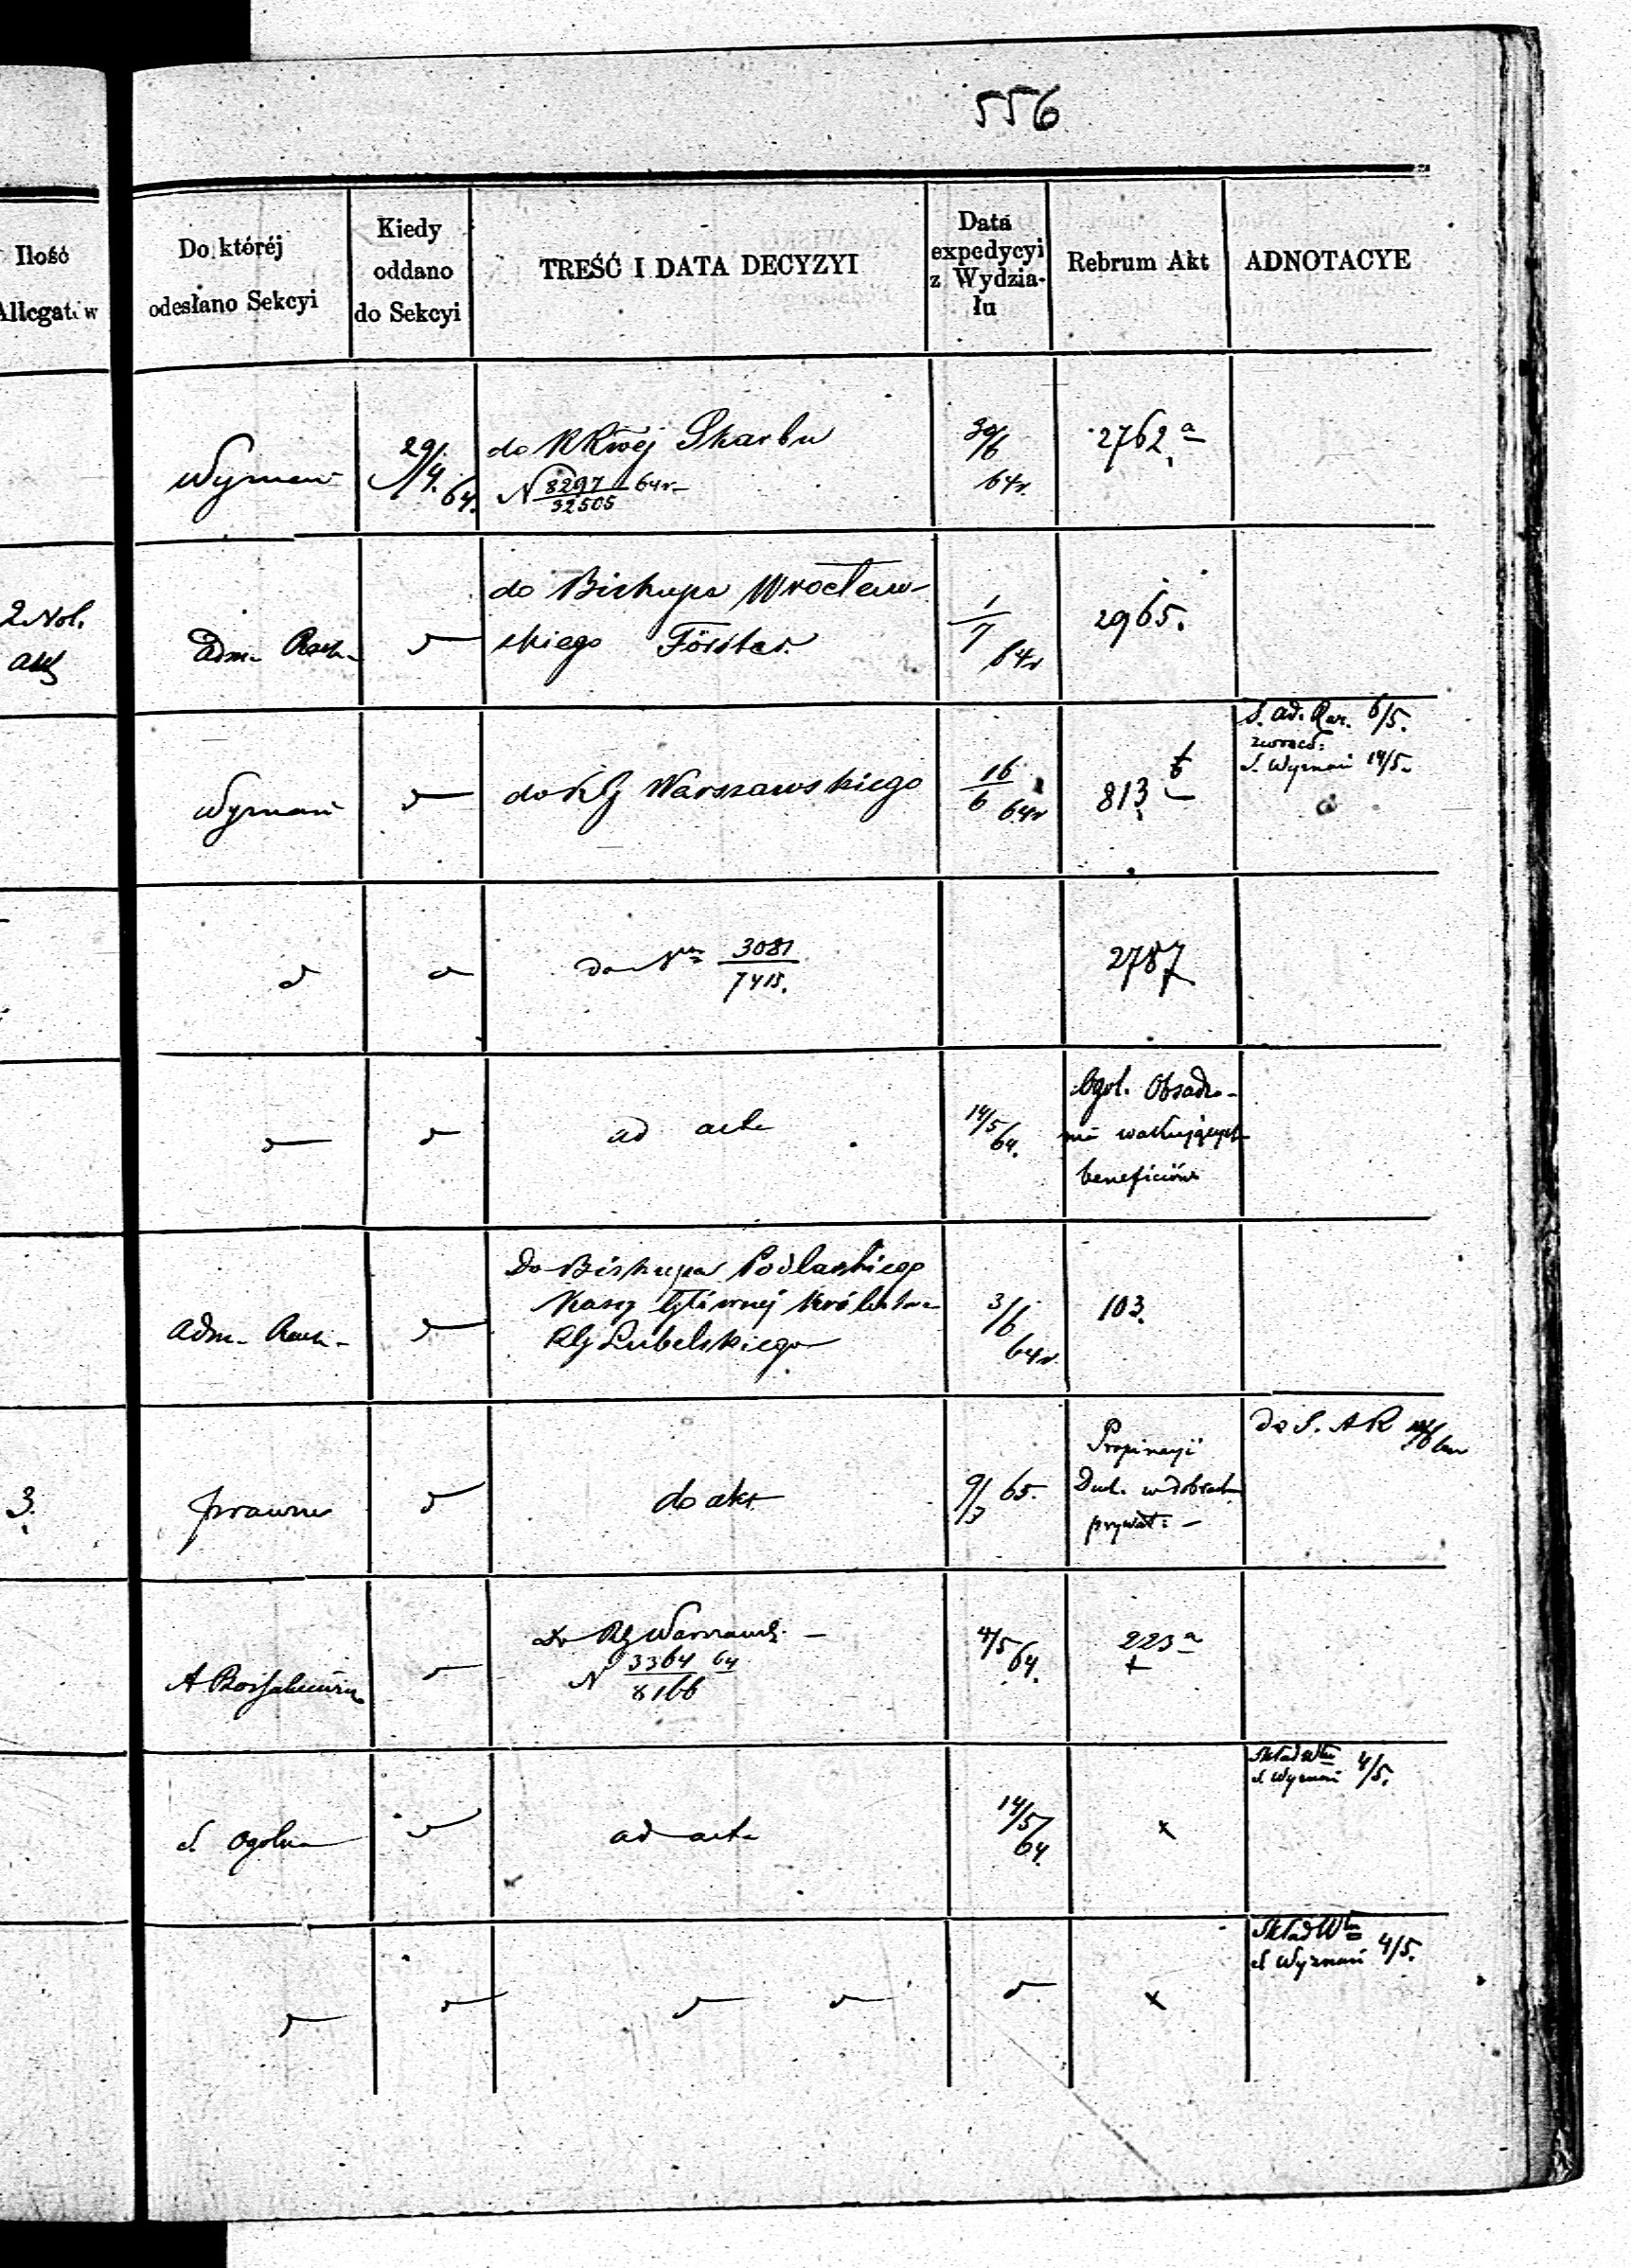 556
Ilość
Allegatów
Do któréj
odesłano Sekcyi
Kiedy
oddano
do Sekcyi
TREŚĆ I DATA DECYZYI
Data
expedycyi
z Wydzia-
łu
Rebrum Akt
ADNOTACYE
Wyznań
29/4 64.
do KRwej Skarbu
N 8297/32505 64r
30/6
64r.
2762 a
2 Vol.
akt
Adm. Rach.
do Biskupa Wrocław-
skiego Förster.
1/7 64r
2965.
Wyznań
do RG Warszawskiego
16/6 64r
813 b
S. ad. Rar. 6/5.
zwraca:
S. Wyznań 14/5
do Nru 3081/7415.
2787
ad acta
14/5 64.
Ogól. Obsadze-
nia wakujących
beneficiów
Adm. Rach.
Do Biskupa Podlaskiego
Kassy Głównej Królestwa
RG Lubelskiego
3/6
64r.
103.
3.
prawna
do akt
9/3 65.
Propinacyi
Duch. w dobrach
prywat:
do S. A R
Do RG Warszawsk.
N 3364/8166 64
4/5 64.
223 a
S. Ogólna
ad acta
14/5
64.
x
Skład Włu
S Wyznań 4/5.
x
Skład Włu
S Wyznań 4/5.